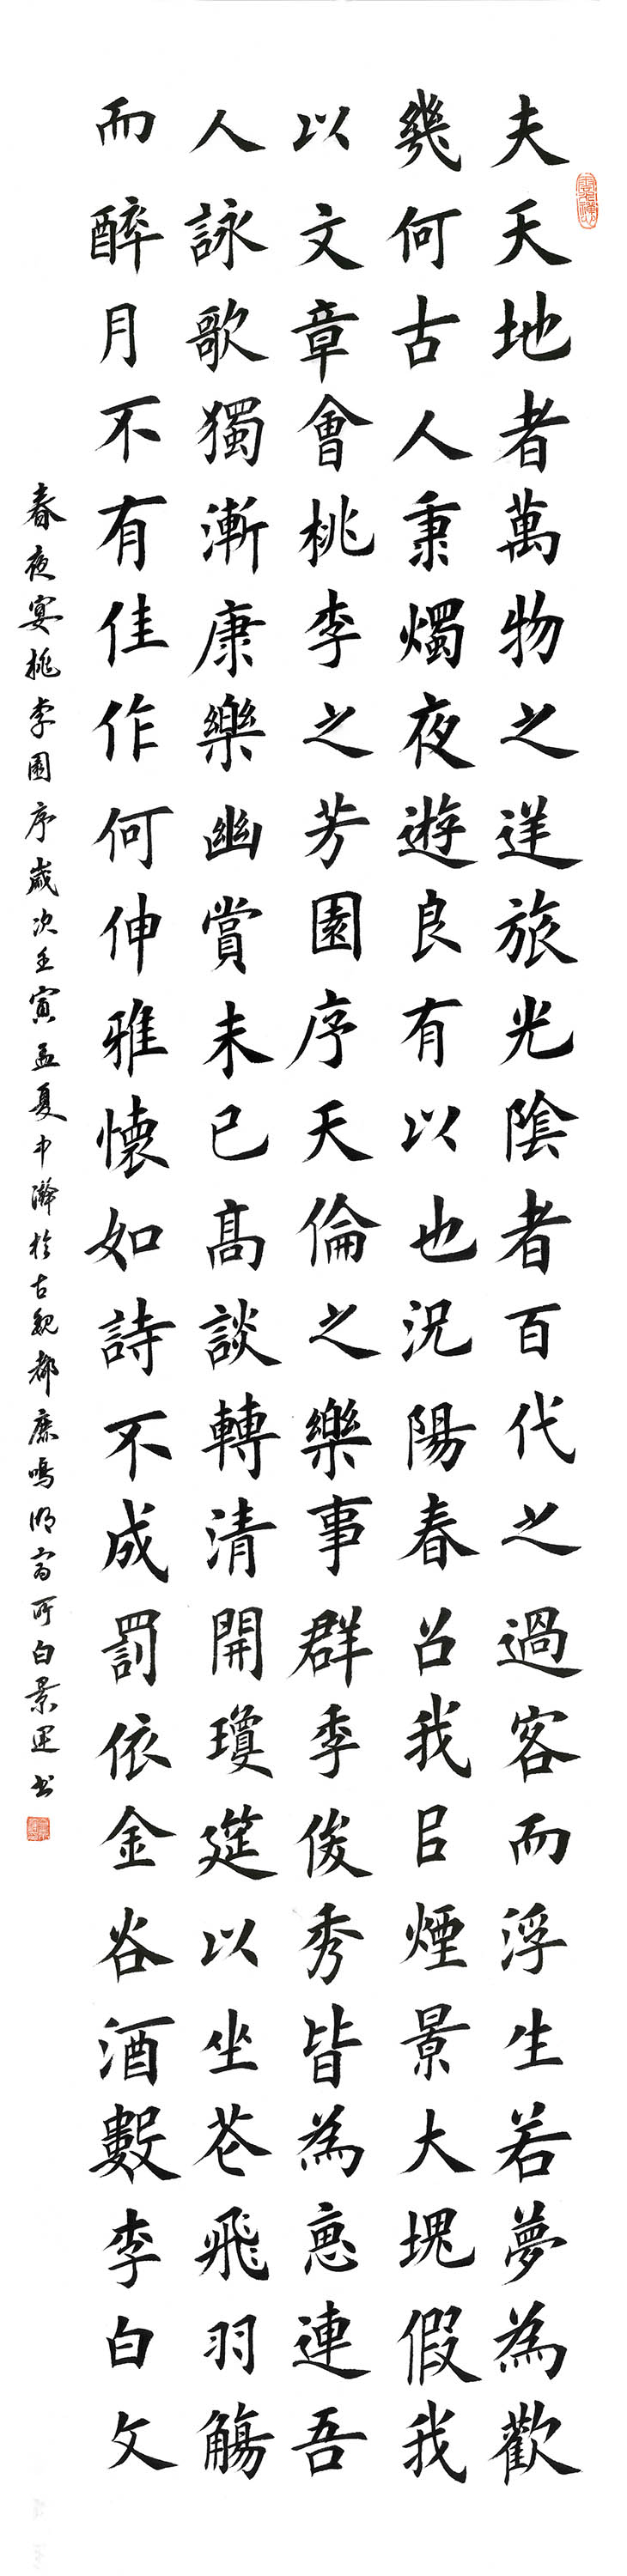 夫天地者萬物之逆旅光陰者百代之過客而浮生若夢為歡
幾何古人秉燭夜遊良有以也況陽春召我㠯煙景大塊假我
以文章會桃李之芳園序天倫之樂事群季俊秀皆為惠連吾
人詠歌獨漸康樂幽賞未已高談轉清開瓊筵以坐花飛羽觴
而醉月不有佳作何伸雅懷如詩不成罰依金谷酒數李白文
春夜宴桃李園序歲次壬寅孟夏中澣於古魏都鹿鳴湖畔所白景運書